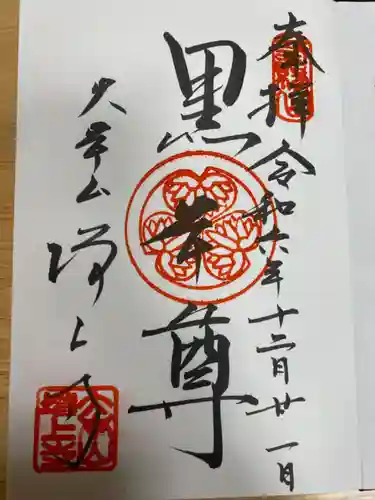 奉拝 令和六年十二月廿一日
黒本尊
大本山 増上寺